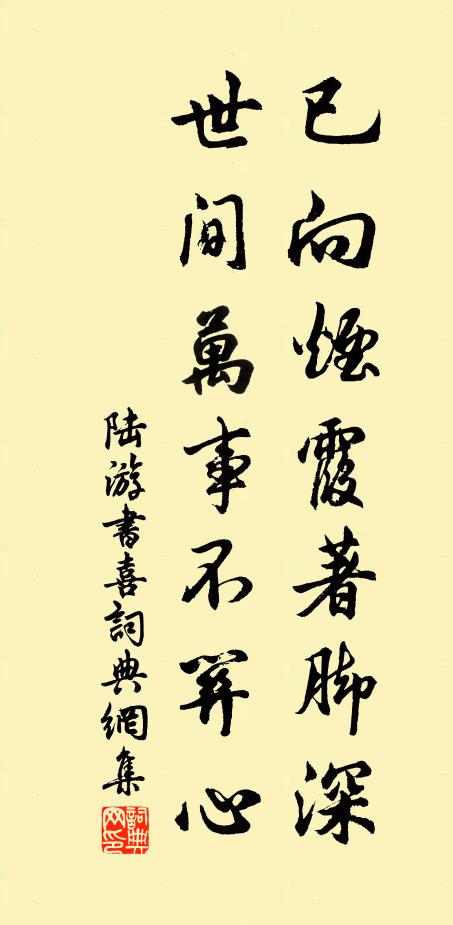 已向煙霞著脚深
世间萬事不關心
陆游書喜詞典網集
詞典网印